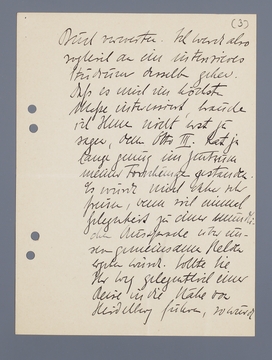 (3)
Druck verwerten. Ich werde also
sogleich an ein intensiveres
Studium derselben gehen.
Daß es mich im höchsten
Maße interessiert, brauche
ich Ihnen nicht erst zu
sagen, denn Otto III. hat ja
lange genug im Zentrum
meiner Forschungen gestanden.
Es würde mich daher sehr
freuen, wenn sich einmal
Gelegenheit zu einer mündli-
chen Aussprache über un-
sern gemeinsamen Helden
ergeben würde. Sollte Sie
Ihr Weg gelegentlich einer
Reise in die Nähe von
Heidelberg führen, so würde